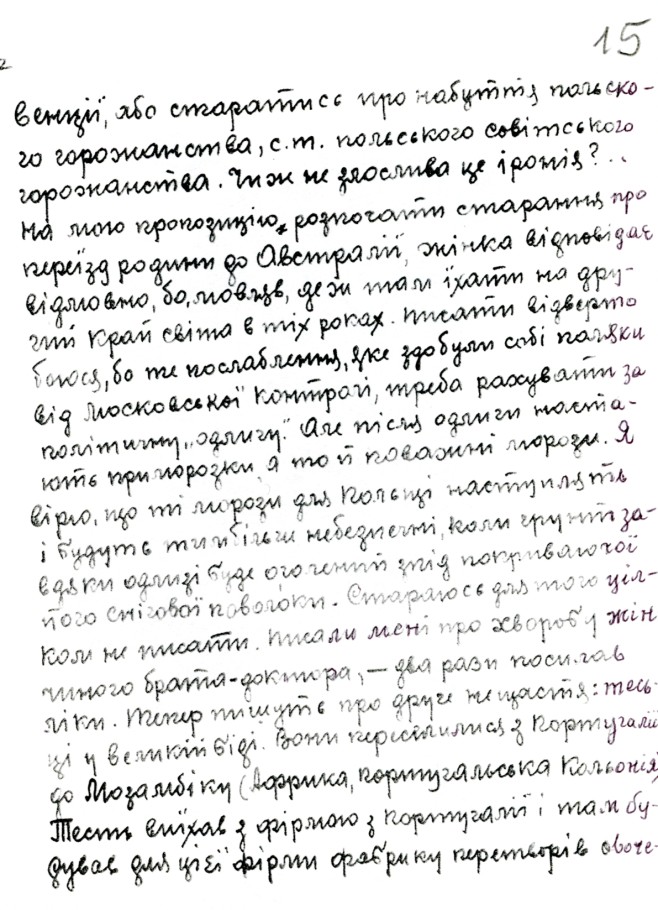 15
венції, або старатись про набуття польско-
го горожанства, с.т. польського совітського
горожанства. Чи ж не злослива це іронія?..
На мою пропозицію розпочати старання про
переїзд родини до Австралії, жінка відповідає
відмовно, бо, мовляв, де ж там їхати на дру-
гий край світа в тіх роках. Писати відверто
боюся, бо те послаблення, яке здобули собі поляки
від Московської контрагі, треба рахувати за
політичну „одлигу". Але після одлиги наста-
ють приморозки, а то й поважні морози. Я
вірю, що ті морози для Польщі наступлять
і будуть тим більш небезпечні, коли ґрунт за-
вдяки одлизі буде оголений зпід покриваючої
його снігової поволоки. Стараюсь для того ціл-
ком не писати. Писали мені про хворобу жін
чиного брата-доктора, — два рази посилав
ліки. Тепер пишуть про друге нещастя: тесь-
ці у великій біді. Вони переселилися з Португалії
до Мозамбіку (Африка, португальська Кольонія)
Тесть виїхав з фірмою з Португалії і там бу-
дував для цієї фірми фабрику перетворів овоче-